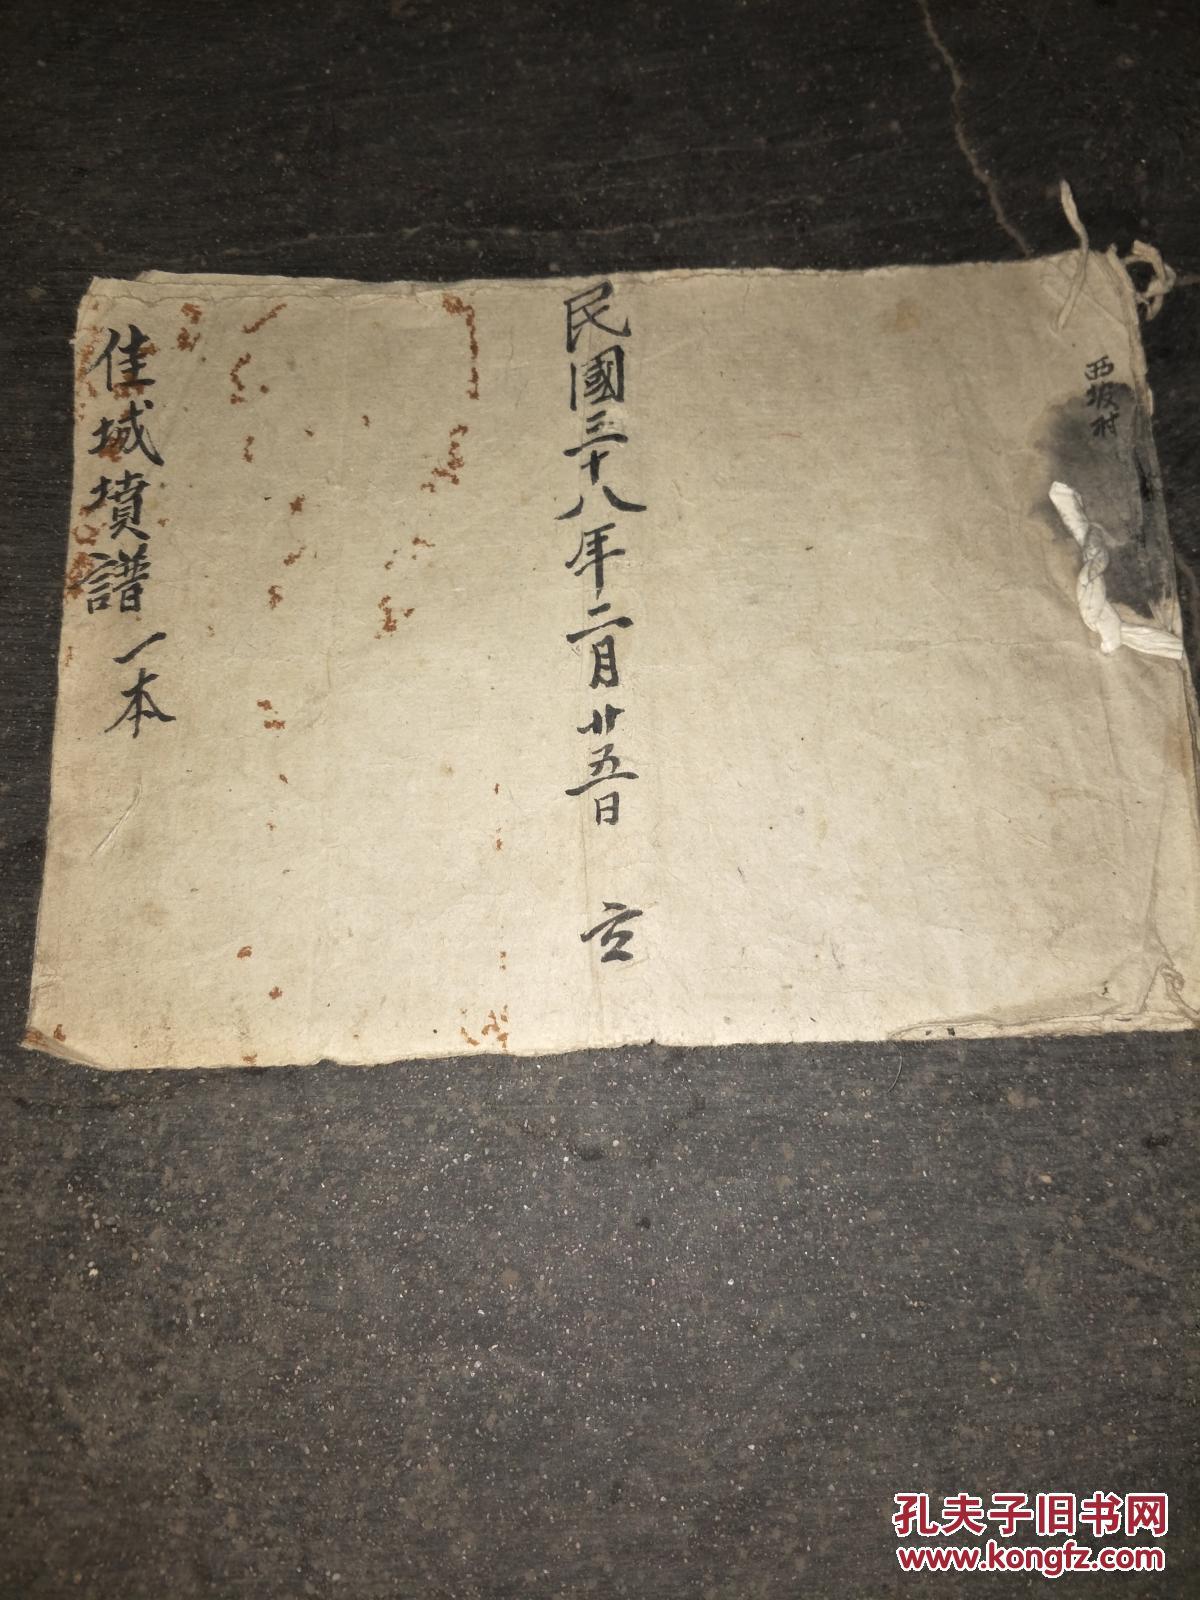 西坡村
民國三十八年二月廿五日 立
佳城墳譜一本
孔夫子旧书网
www.kongfz.com